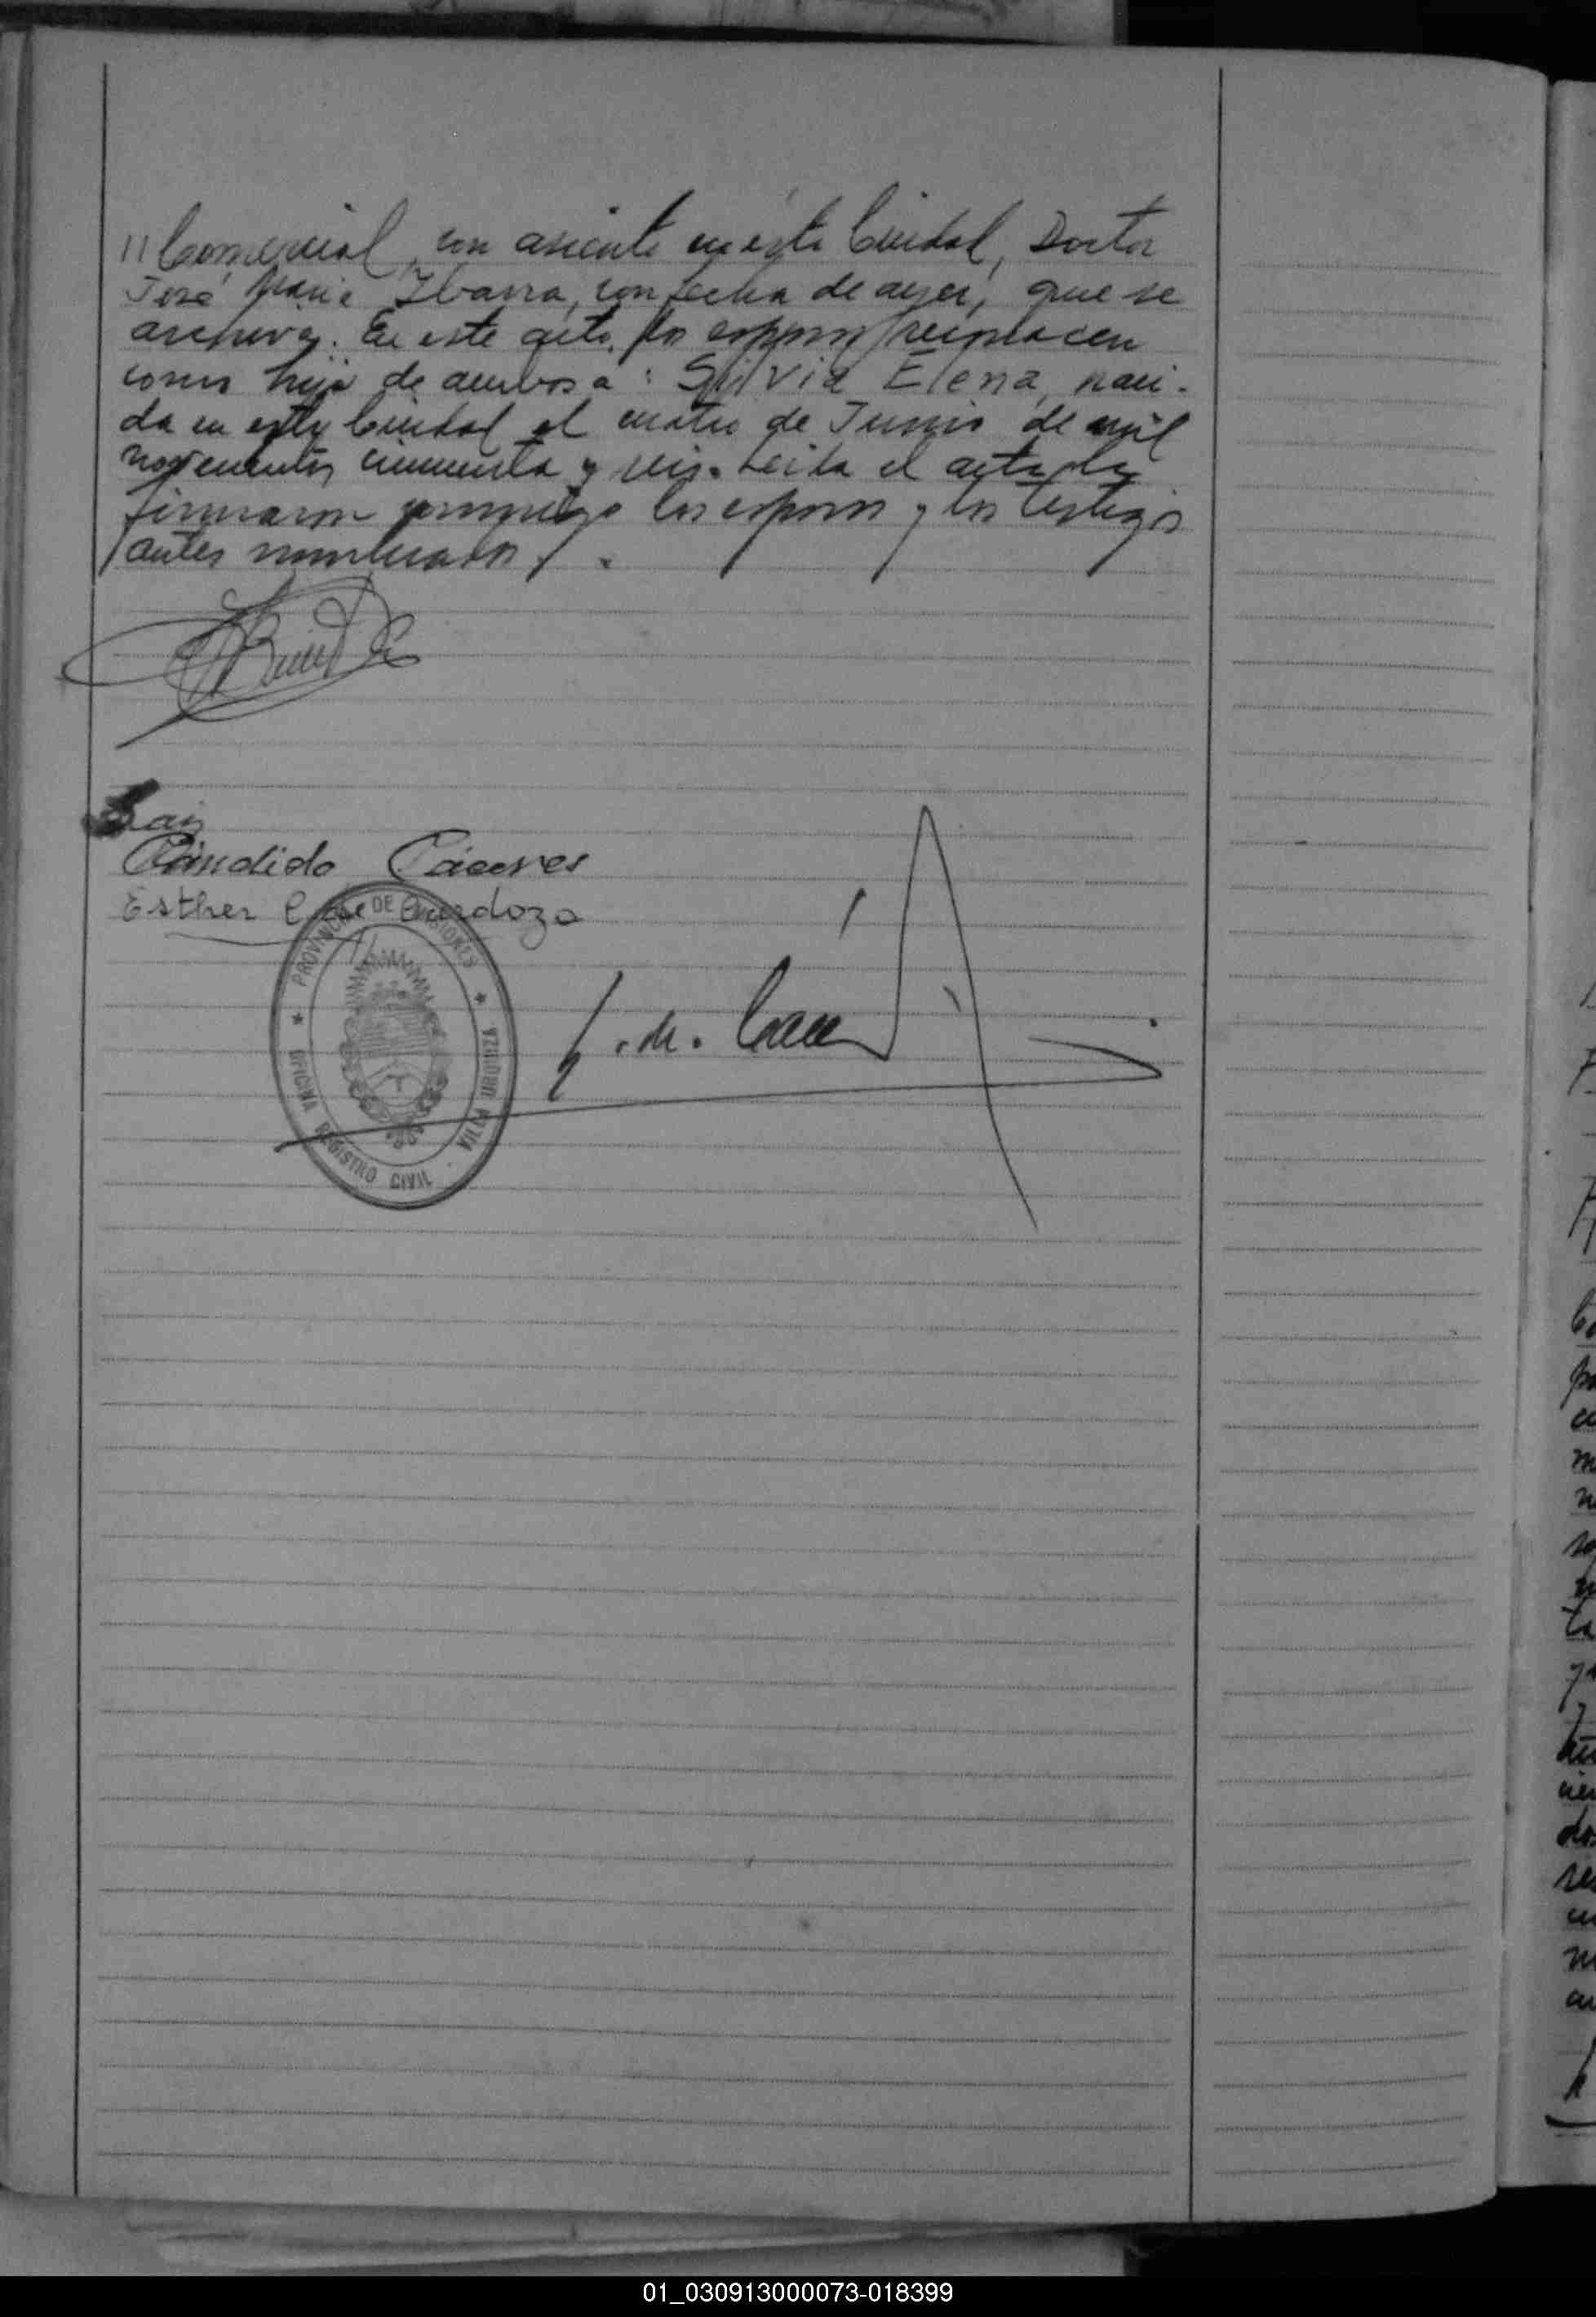 "Comercial, con asiento en ésta Ciudad, Doctor
José María Ibarra, con fecha de ayer, que se
archiva. En este acto, los esposos reconocen
como hija de ambos a: Silvia Elena, naci-
da en esta Ciudad el cuatro de Junio de mil
novecientos cincuenta y seis. Leida el acta, la
firmaron conmigo los esposos y los testigos
antes nombrados.
Cándido Cáceres
Esther de Mendoza
PROVINCIA DE MISIONES
OFICINA REGISTRO CIVIL · VILLA URQUIZA
01_030913000073-018399